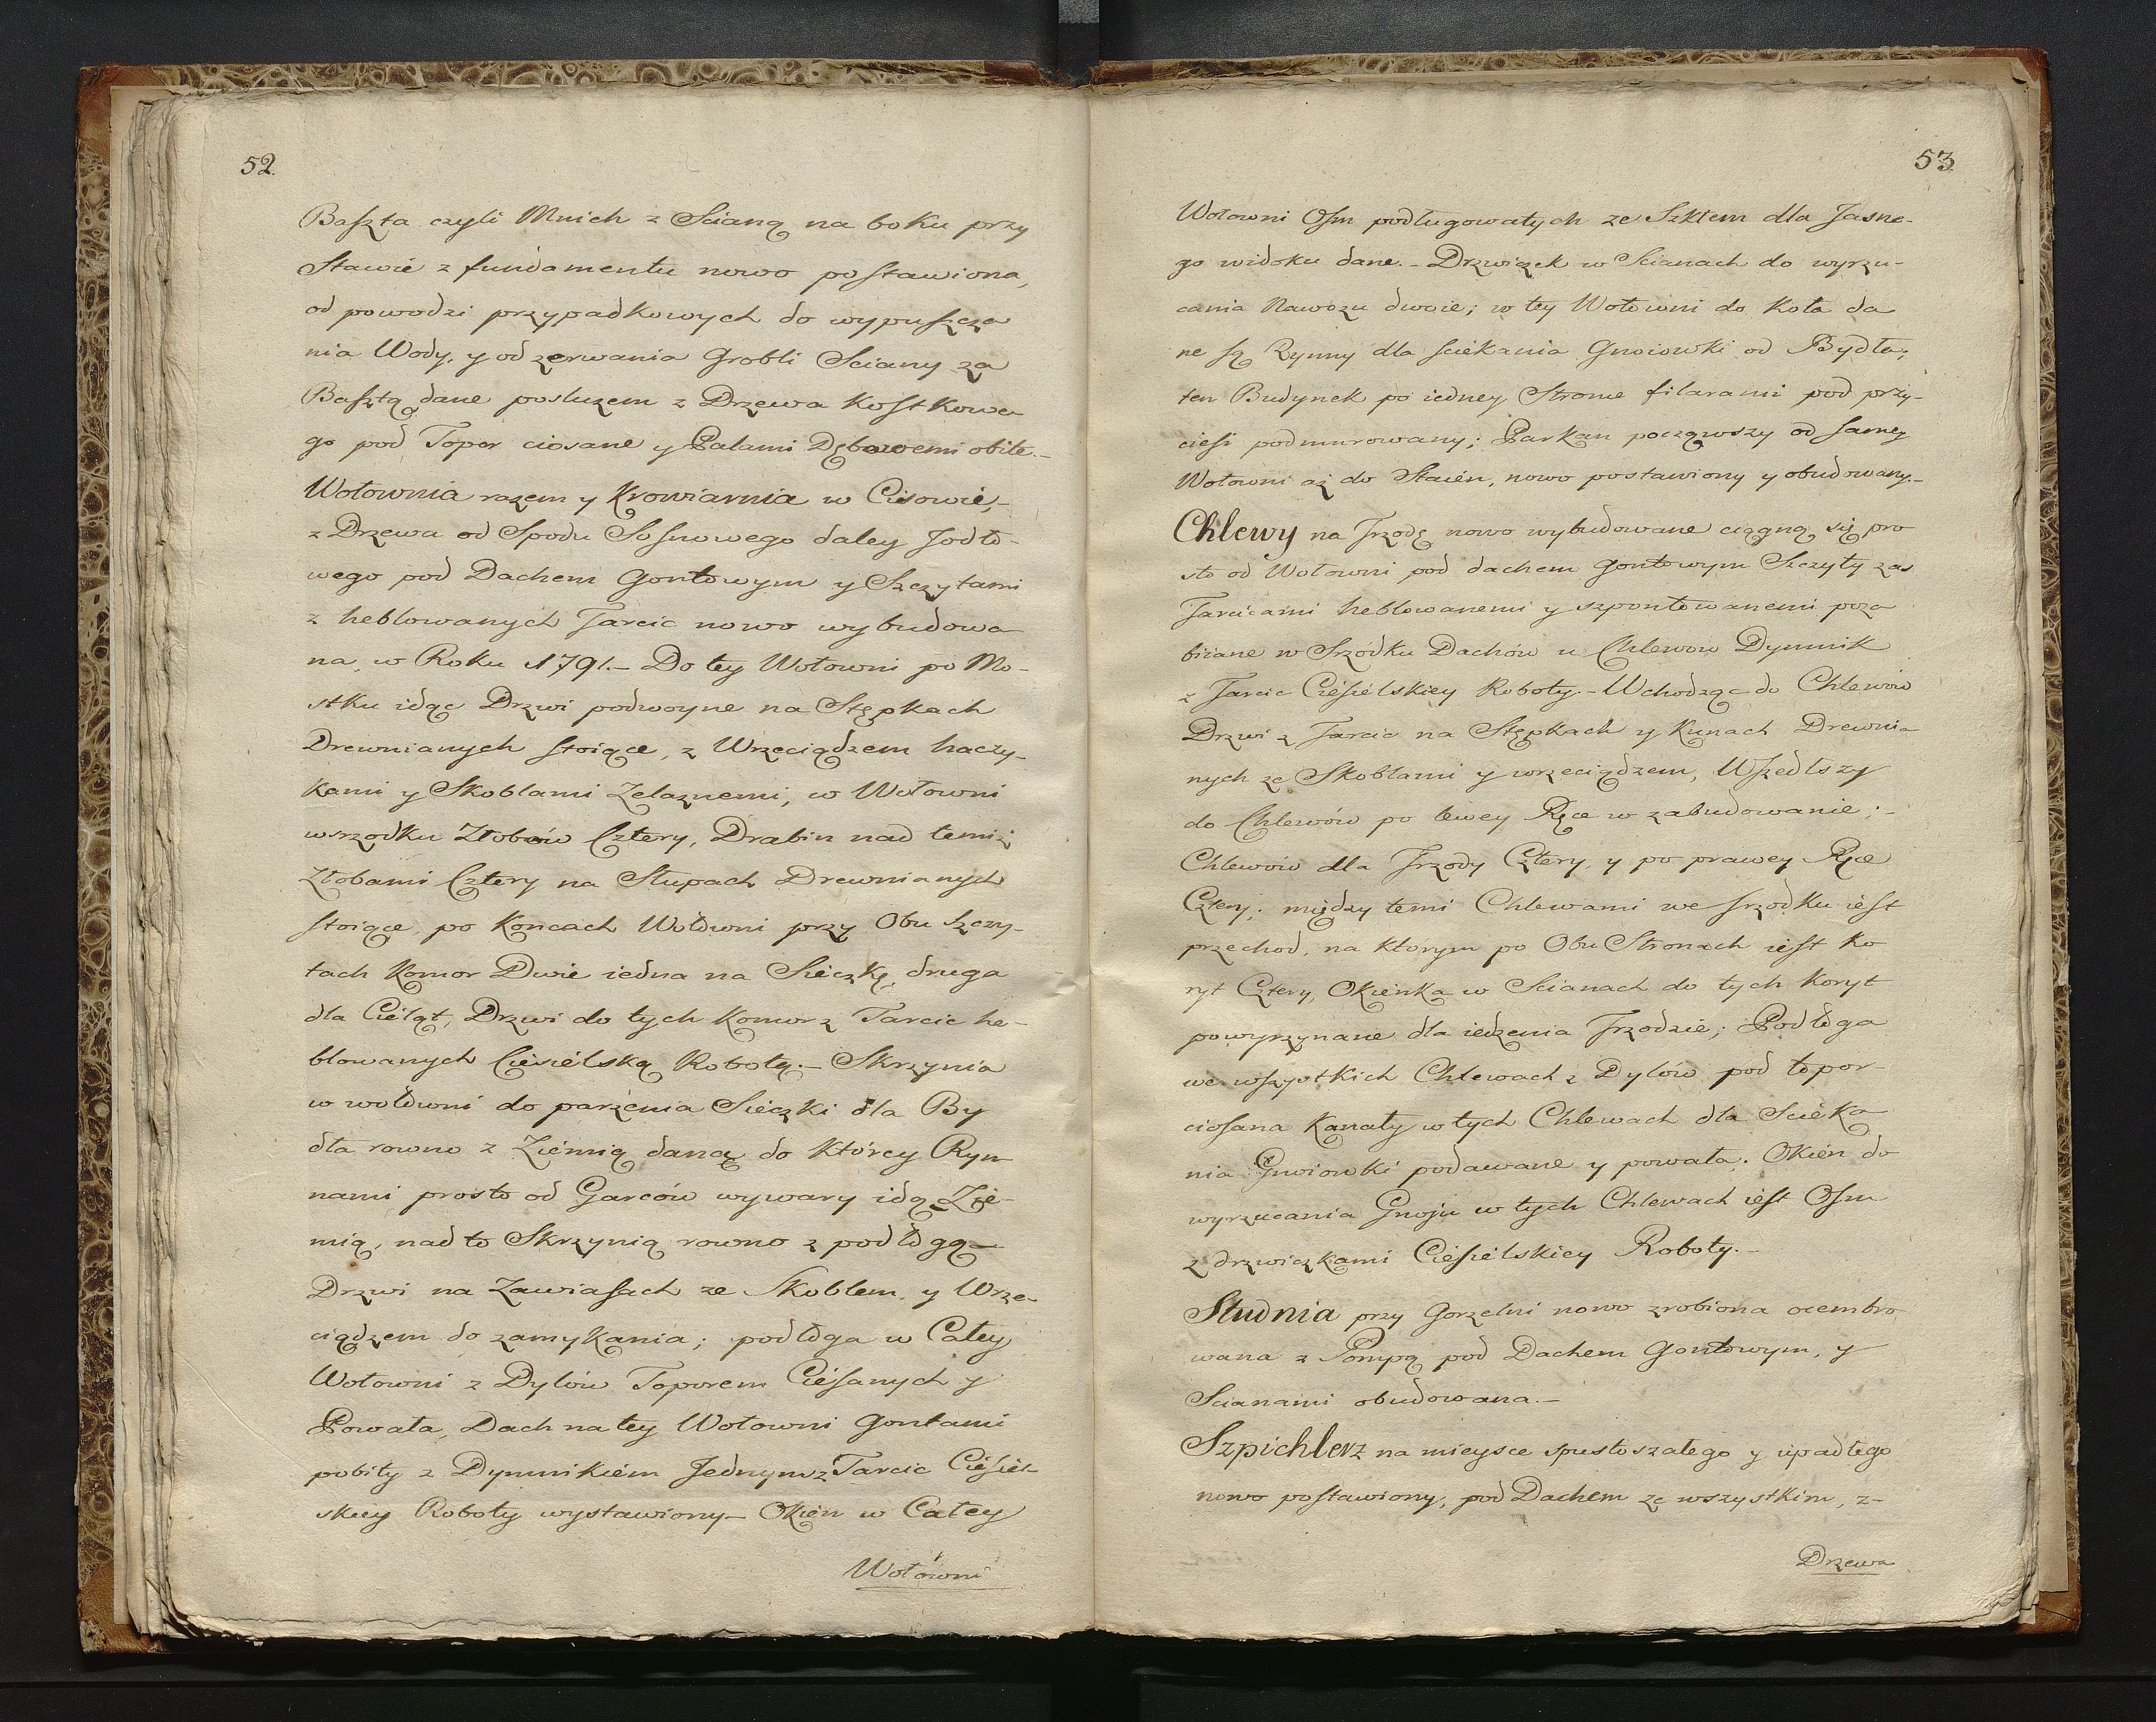 52.
Baszta czyli Mnich z Scianą na boku przy
Stawie z fundamentu nowo postawiona,
od powodzi przypadkowych do wypuszcza
nia Wody, y od zerwania Grobli Sciany za
Basztą dane posluzem z Drzewa Kostkowe
go pod Topor ciosane y Palami Dębowemi obite.-
Wołownia razem y Krowiarnia w Cisowie,-
z Drzewa od Spodu Sosnowego daley Jodło-
wego pod Dachem Gontowym y Szczytami
z heblowanych Tarcic nowo wybudowa
na, w Roku 1791.- Do tey Wołowni po Mo-
stku idąc Drzwi podwoyne na Stępkach
Drewnianych stoiące, z Wrzeciądzem haczy-
kami y Skoblami Zelaznemi, w Wołowni
wsrzodku Złobów Cztery, Drabin nad temiż
Złobami Cztery na Słupach Drewnianych
stoiące, po Koncach Wołowni przy Obu szczy-
tach Komor Dwie iedna na Sieczkę, druga
dla Cieląt, Drzwi do tych Komor z Tarcic he-
blowanych Ciesielską Robotą.- Skrzynia
w wołowni do parzenia Sieczki dla By
dła rowno z Ziemią daną do którey Ryn
nami prosto od Garców wywary idą Zie-
mią, nad to Skrzynią rowno z podłogą-
Drzwi na Zawiasach ze Skoblem, y Wrze-
ciądzem do zamykania; podłoga w Całey
Wołowni z Dylów Toporem Ciésanych y
Powała, Dach na tey Wołowni Gontami
pobity z Dymnikiem Jednym z Tarcic Ciésiel-
skiey Roboty wystawiony- Okien w Całey
Wołowni
53
Wołowni Osm podługowatych ze Szkłem dla Jasne-
go widoku dane.- Drzwiczek w Scianach do wyrzu-
cania Nawozu dwoie; w tey Wołowni do Koła da
ne są Rynny dla sciekania Gnoiowki od Bydła;
ten Budynek po iedney Stronie filarami pod przy-
ciesi podmurowany; Parkan począwszy od samey
Wołowni aż do Staien, nowo postawiony y obudowany.-
Chlewy na Trzodę nowo wybudowane ciągną się pro
sto od Wołowni pod dachem gontowym Szczyty zas
Tarcicami heblowanemi y szpontowanemi poza
biiane w Srzódku Dachów u Chlewow Dymnik
z Tarcic Ciésielskiey Roboty.- Wchodząc do Chlewów
Drzwi z Tarcic na Stępkach y Kunach Drewnia
nych ze Skoblami y wrzeciądzem, Wszedłszy
do Chlewów po lewey Ręce w zabudowanie;-
Chlewów dla Trzody Cztery, y po prawey Ręce
Cztery; między temi Chlewami we srzodku iest
przechod, na ktorym po Obu Stronach iest Ko
ryt Cztery, Okienka w Scianach do tych Koryt
powyrzynane dla iedzenia Trzodzie; Podłoga
we wszystkich Chlewach z Dylów pod topor-
ciosana Kanały w tych Chlewach dla Scieka
nia Gnoiowki podawane y powała. Okien do
wyrzucania Gnoju w tych Chlewach iest Osm
z drzwiczkami Ciésielskiey Roboty.-
Studnia przy Gorzelni nowo zrobiona ocembro
wana z Pompą pod Dachem Gontowym, y
Scianami obudowana.-
Szpichlerz na mieysce spustoszałego y upadłego
nowo postawiony, pod Dachem ze wszystkim, z-
Drzewa